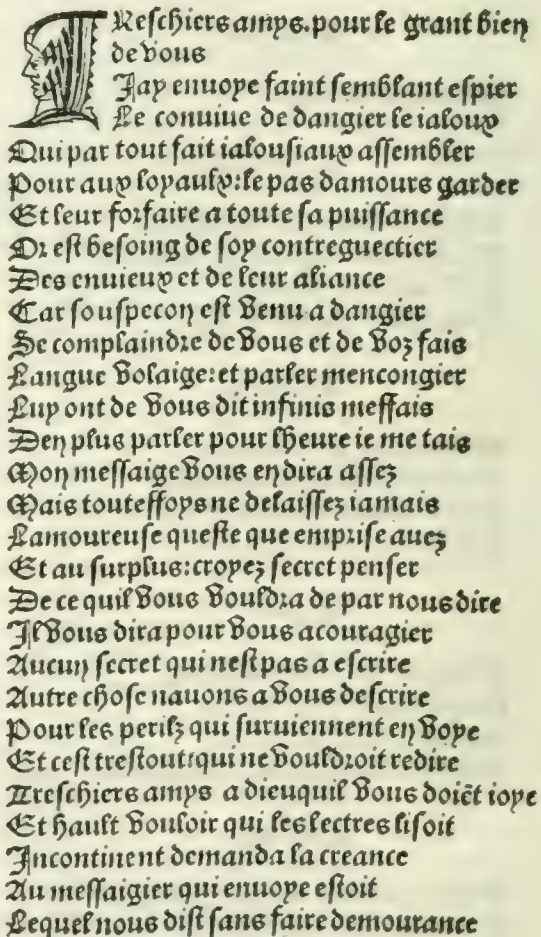 TReschiers amys. pour le grant bien
de vous
Jay enuoye faint semblant espier
Le conuiue de dangier le ialoux
Qui par tout fait ialousiaux assembler
Pour aux loyaulx: le pas damours garder
Et leur forfaire a toute sa puissance
Or est besoing de soy contreguectier
Des enuieux et de leur aliance
Car souspecon est venu a dangier
Se complaindre de vous et de voz fais
Langue volaige: et parler mencongier
Luy ont de vous dit infinis meffais
Den plus parler pour lheure ie me tais
Mon messaige vous en dira assez
Mais touteffoys ne delaissez iamais
Lamoureuse queste que emprise auez
Et au surplus: croyez secret penser
De ce quil vous vouldra de par nous dire
Il vous dira pour vous acouragier
Aucun secret qui nest pas a escrire
Autre chose nauons a vous descrire
Pour les perilz qui suruiennent en voye
Et cest trestout: qui ne vouldroit redire
Treschiers amys a dieu quil vous doiēt ioye
Et hault vouloir qui les lectres lisoit
Incontinent demanda la creance
Au messaigier qui enuoye estoit
Lequel nous dist sans faire demourance